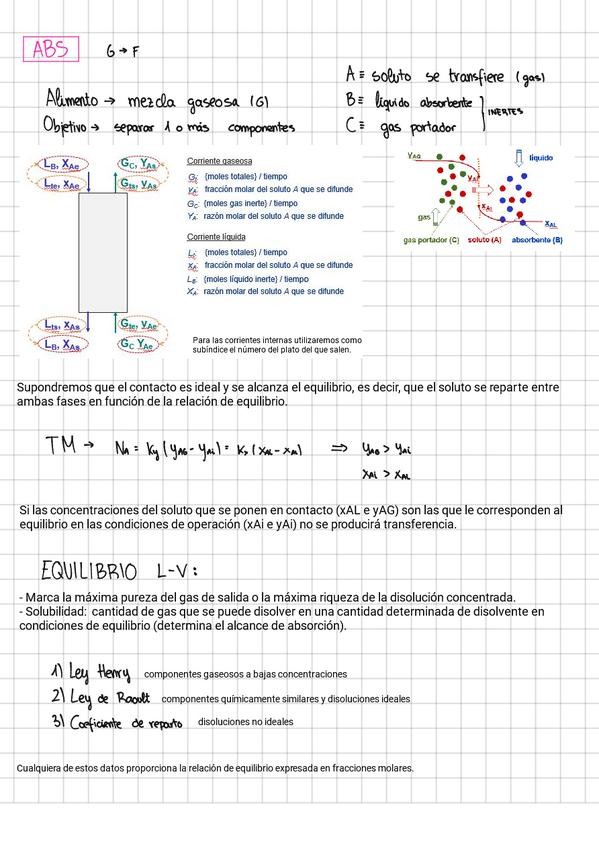 ABS G → F
A ≡ soluto se transfiere (gas)
Alimento → mezcla gaseosa (G) B ≡ líquido absorbente
INERTES
Objetivo → separar 1 o más componentes C ≡ gas portador
L_B, X_Ae G_C, Y_As
L_te, x_Ae G_ts, y_As
Corriente gaseosa
G_t: (moles totales) / tiempo
y_A: fracción molar del soluto A que se difunde
G_C: (moles gas inerte) / tiempo
Y_A: razón molar del soluto A que se difunde
Corriente líquida
L_t: (moles totales) / tiempo
x_A: fracción molar del soluto A que se difunde
L_B: (moles líquido inerte) / tiempo
X_A: razón molar del soluto A que se difunde
L_ts, x_As G_te, y_Ae
L_B, X_As G_C Y_Ae
Para las corrientes internas utilizaremos como
subíndice el número del plato del que salen.
y_AG líquido
y_Ai
x_Ai
gas x_AL
gas portador (C) soluto (A) absorbente (B)
Supondremos que el contacto es ideal y se alcanza el equilibrio, es decir, que el soluto se reparte entre
ambas fases en función de la relación de equilibrio.
TM → N_A = k_y (y_AG - y_Ai) = k_x (x_Ai - x_AL) ⇒ y_AG > y_Ai
x_Ai > x_AL
Si las concentraciones del soluto que se ponen en contacto (xAL e yAG) son las que le corresponden al
equilibrio en las condiciones de operación (xAi e yAi) no se producirá transferencia.
EQUILIBRIO L-V:
- Marca la máxima pureza del gas de salida o la máxima riqueza de la disolución concentrada.
- Solubilidad: cantidad de gas que se puede disolver en una cantidad determinada de disolvente en
condiciones de equilibrio (determina el alcance de absorción).
1) Ley Henry componentes gaseosos a bajas concentraciones
2) Ley de Raoult componentes químicamente similares y disoluciones ideales
3) Coeficiente de reparto disoluciones no ideales
Cualquiera de estos datos proporciona la relación de equilibrio expresada en fracciones molares.